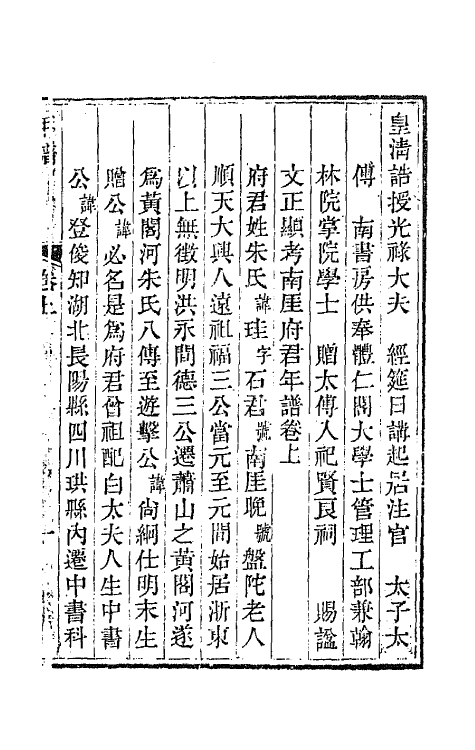 皇清誥授光祿大夫 經筵日講起居注官 太子太
傅 南書房供奉體仁閣大學士管理工部兼翰
林院掌院學士 贈太傅入祀賢良祠 賜諡
文正顯考南厓府君年譜卷上
府君姓朱氏諱珪字石君號南厓晚號盤陀老人
順天大興人遠祖福三公當元至元間始居浙東
以上無徵明洪永間德三公遷蕭山之黃閣河遂
為黃閣河朱氏八傳至遊擊公諱尙絅仕明末生
贈公諱必名是為府君曾祖配白太夫人生中書
公諱登俊知湖北長陽縣四川珙縣內遷中書科
年譜 卷上 一